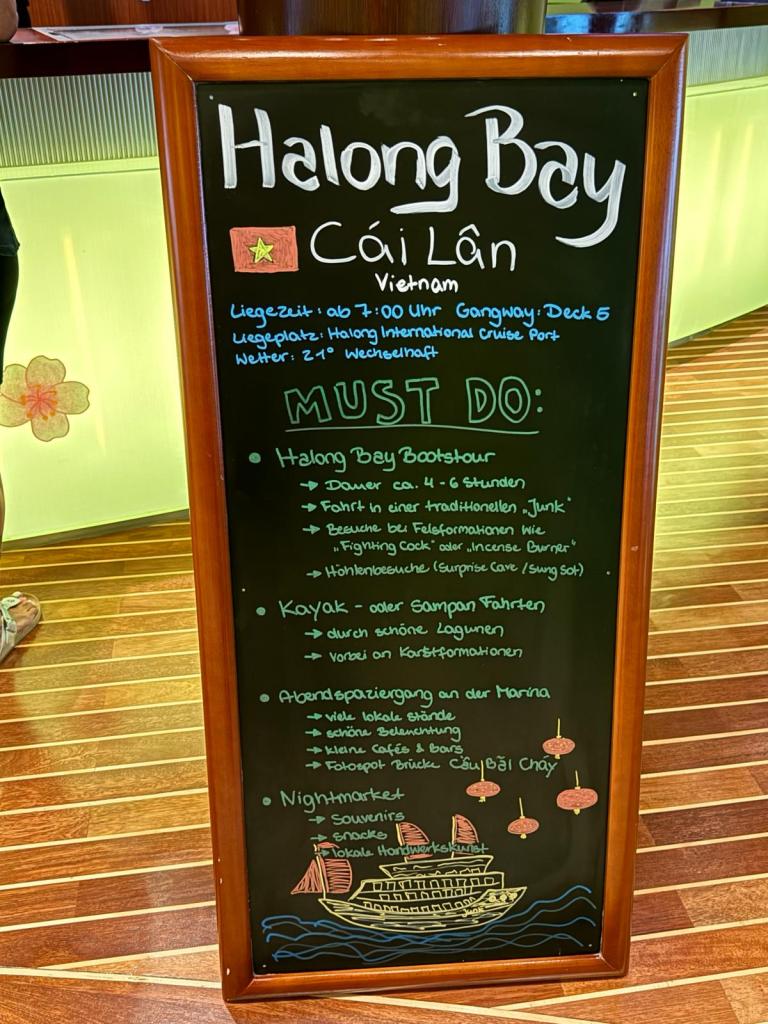 Halong Bay
Cái Lân
Vietnam
Liegezeit: ab 7:00 Uhr Gangway: Deck 5
Liegeplatz: Halong International Cruise Port
Wetter: 21° Wechselhaft
MUST DO:
• Halong Bay Bootstour
→ Dauer ca. 4-6 Stunden
→ Fahrt in einer traditionellen „Junk"
→ Besuche bei Felsformationen wie
„Fighting Cock" oder „Incense Burner"
→ Höhlenbesuche (Surprise Cave / Sung Sot)
• Kayak - oder Sampan Fahrten
→ durch schöne Lagunen
→ vorbei an Karstformationen
• Abendspaziergang an der Marina
→ viele lokale Stände
→ schöne Beleuchtung
→ kleine Cafés & Bars
→ Fotospot Brücke Cầu Bãi Cháy
• Nightmarket
→ Souvenirs
→ Snacks
→ lokale Handwerkskunst